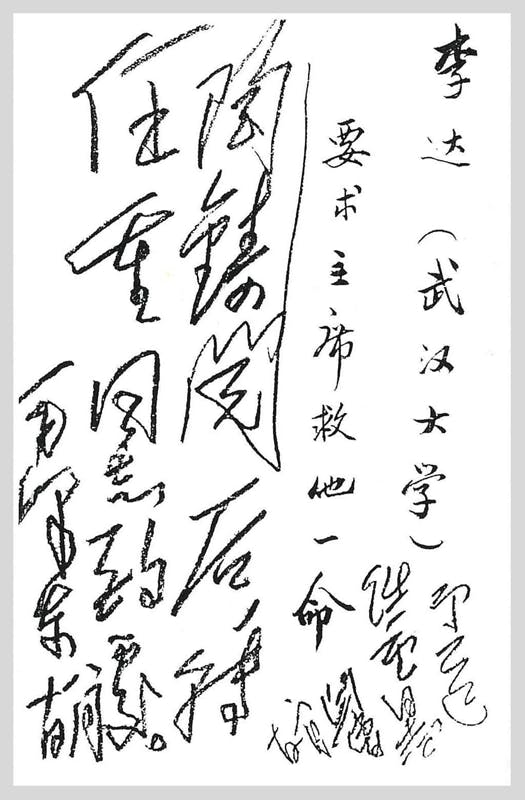 李达（武汉大学）
要求主席救他一命
陶铸阅后转
任重同志酌处。
毛泽东